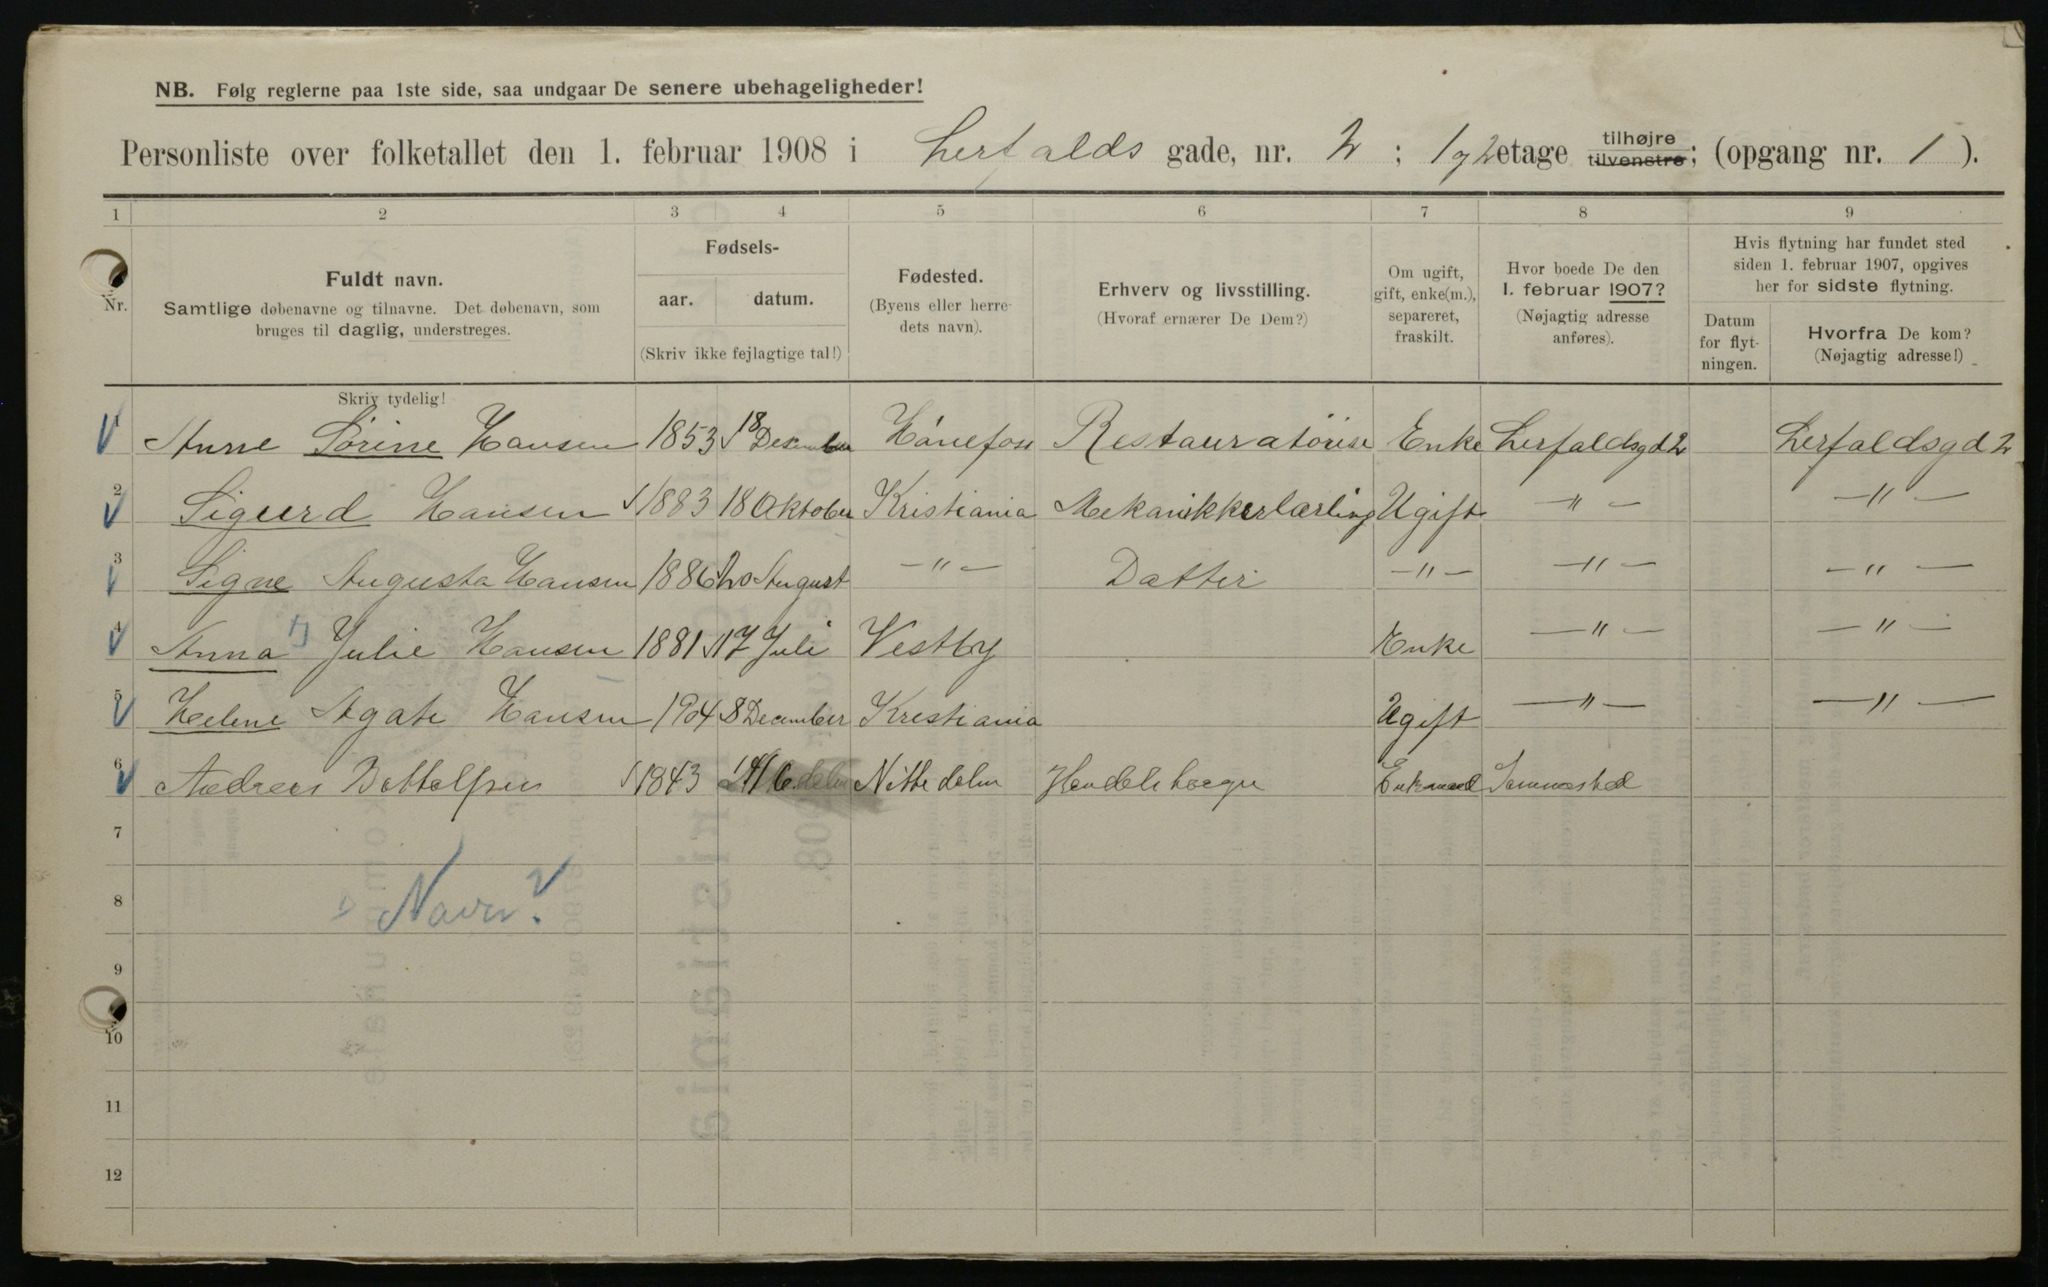 NB. Følg reglerne paa 1ste side, saa undgaar De senere ubehageligheder!
Personliste over folketallet den 1. februar 1908 i Lerfalds gade, nr. 2 ; 1 og 2 etage tilhøjre tilvenstre; (opgang nr. 1 ).
1 2 3 4 5 6 7 8 9
Nr.
Fuldt navn.
Samtlige døbenavne og tilnavne. Det døbenavn, som
bruges til daglig, understreges.
Skriv tydelig!
Fødsels-
aar. datum.
(Skriv ikke fejlagtige tal!)
Fødested.
(Byens eller herre-
dets navn).
Erhverv og livsstilling.
(Hvoraf ernærer De Dem?)
Om ugift,
gift, enke(m.),
separeret,
fraskilt.
Hvor boede De den
1. februar 1907?
(Nøjagtig adresse
anføres).
Hvis flytning har fundet sted
siden 1. februar 1907, opgives
her for sidste flytning.
Datum
for flyt-
ningen.
Hvorfra De kom?
(Nøjagtig adresse!)
1 Anne Sörine Hansen 1853 18 December Hönefoss Restauratörise Enke Lerfaldsgd 2 Lerfaldsgd 2
2 Sigurd Hansen 1883 18 Oktober Kristiania Mekanikkerlærling Ugift —"— —"—
3 Signe Augusta Hansen 1886 20 August —"— Datter —"— —"— —"—
4 Anna Julie Hansen 1881 17 Juli Vestby Enke —"— —"—
5 Helene Agate Hansen 1904 8 December Kristiania Ugift —"— —"—
6 Andreas 1843 Nittedalen Enkemand
7
8 Navn?
9
10
11
12